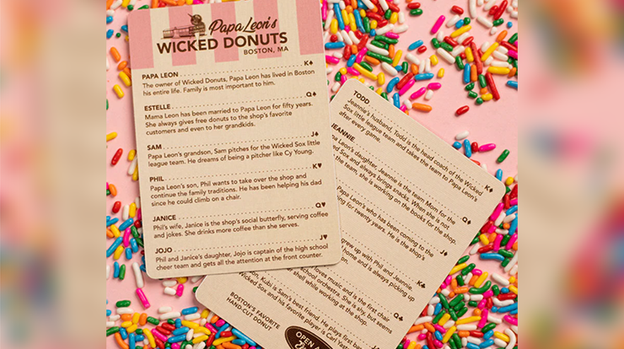 Papa Leon's
WICKED DONUTS
BOSTON, MA
PAPA LEON K♠
The owner of Wicked Donuts, Papa Leon has lived in Boston
his entire life. Family is most important to him.
ESTELLE Q♠
Mama Leon has been married to Papa Leon for fifty years.
She always gives free donuts to the shop's favorite
customers and even to her grandkids.
SAM J♠
Papa Leon's grandson, Sam pitches for the Wicked Sox little
league team. He dreams of being a pitcher like Cy Young.
PHIL K♥
Papa Leon's son, Phil wants to take over the shop and
continue the family traditions. He has been helping his dad
since he could climb on a chair.
JANICE Q♥
Phil's wife, Janice is the shop's social butterfly, serving coffee
and jokes. She drinks more coffee than she serves.
JOJO J♥
Phil and Janice's daughter, Jojo is captain of the high school
cheer team and gets all the attention at the front counter.
TODD K♦
Jeannie's husband, Todd is the head coach of the Wicked
Sox little league team and takes the team to Papa Leon's
after every game.
JEANNIE Q♦
Papa Leon's daughter, Jeannie is the team Mom for the
Wicked Sox and always brings snacks. When she is not
the team, she is working on the books for the shop.
Papa Leon's who has been coming to the
for twenty years. He is the shop's
grew up with Phil and Jeannie.
home and is always picking up
loves music and is the first chair
school orchestra. She is shy, but seems
shell while working at the shop.
Kobi is Sam's best friend. He plays first base
Wicked Sox and his favorite player is Carl
BOSTON'S FAVORITE
HAND-CUT DONUT
OPEN